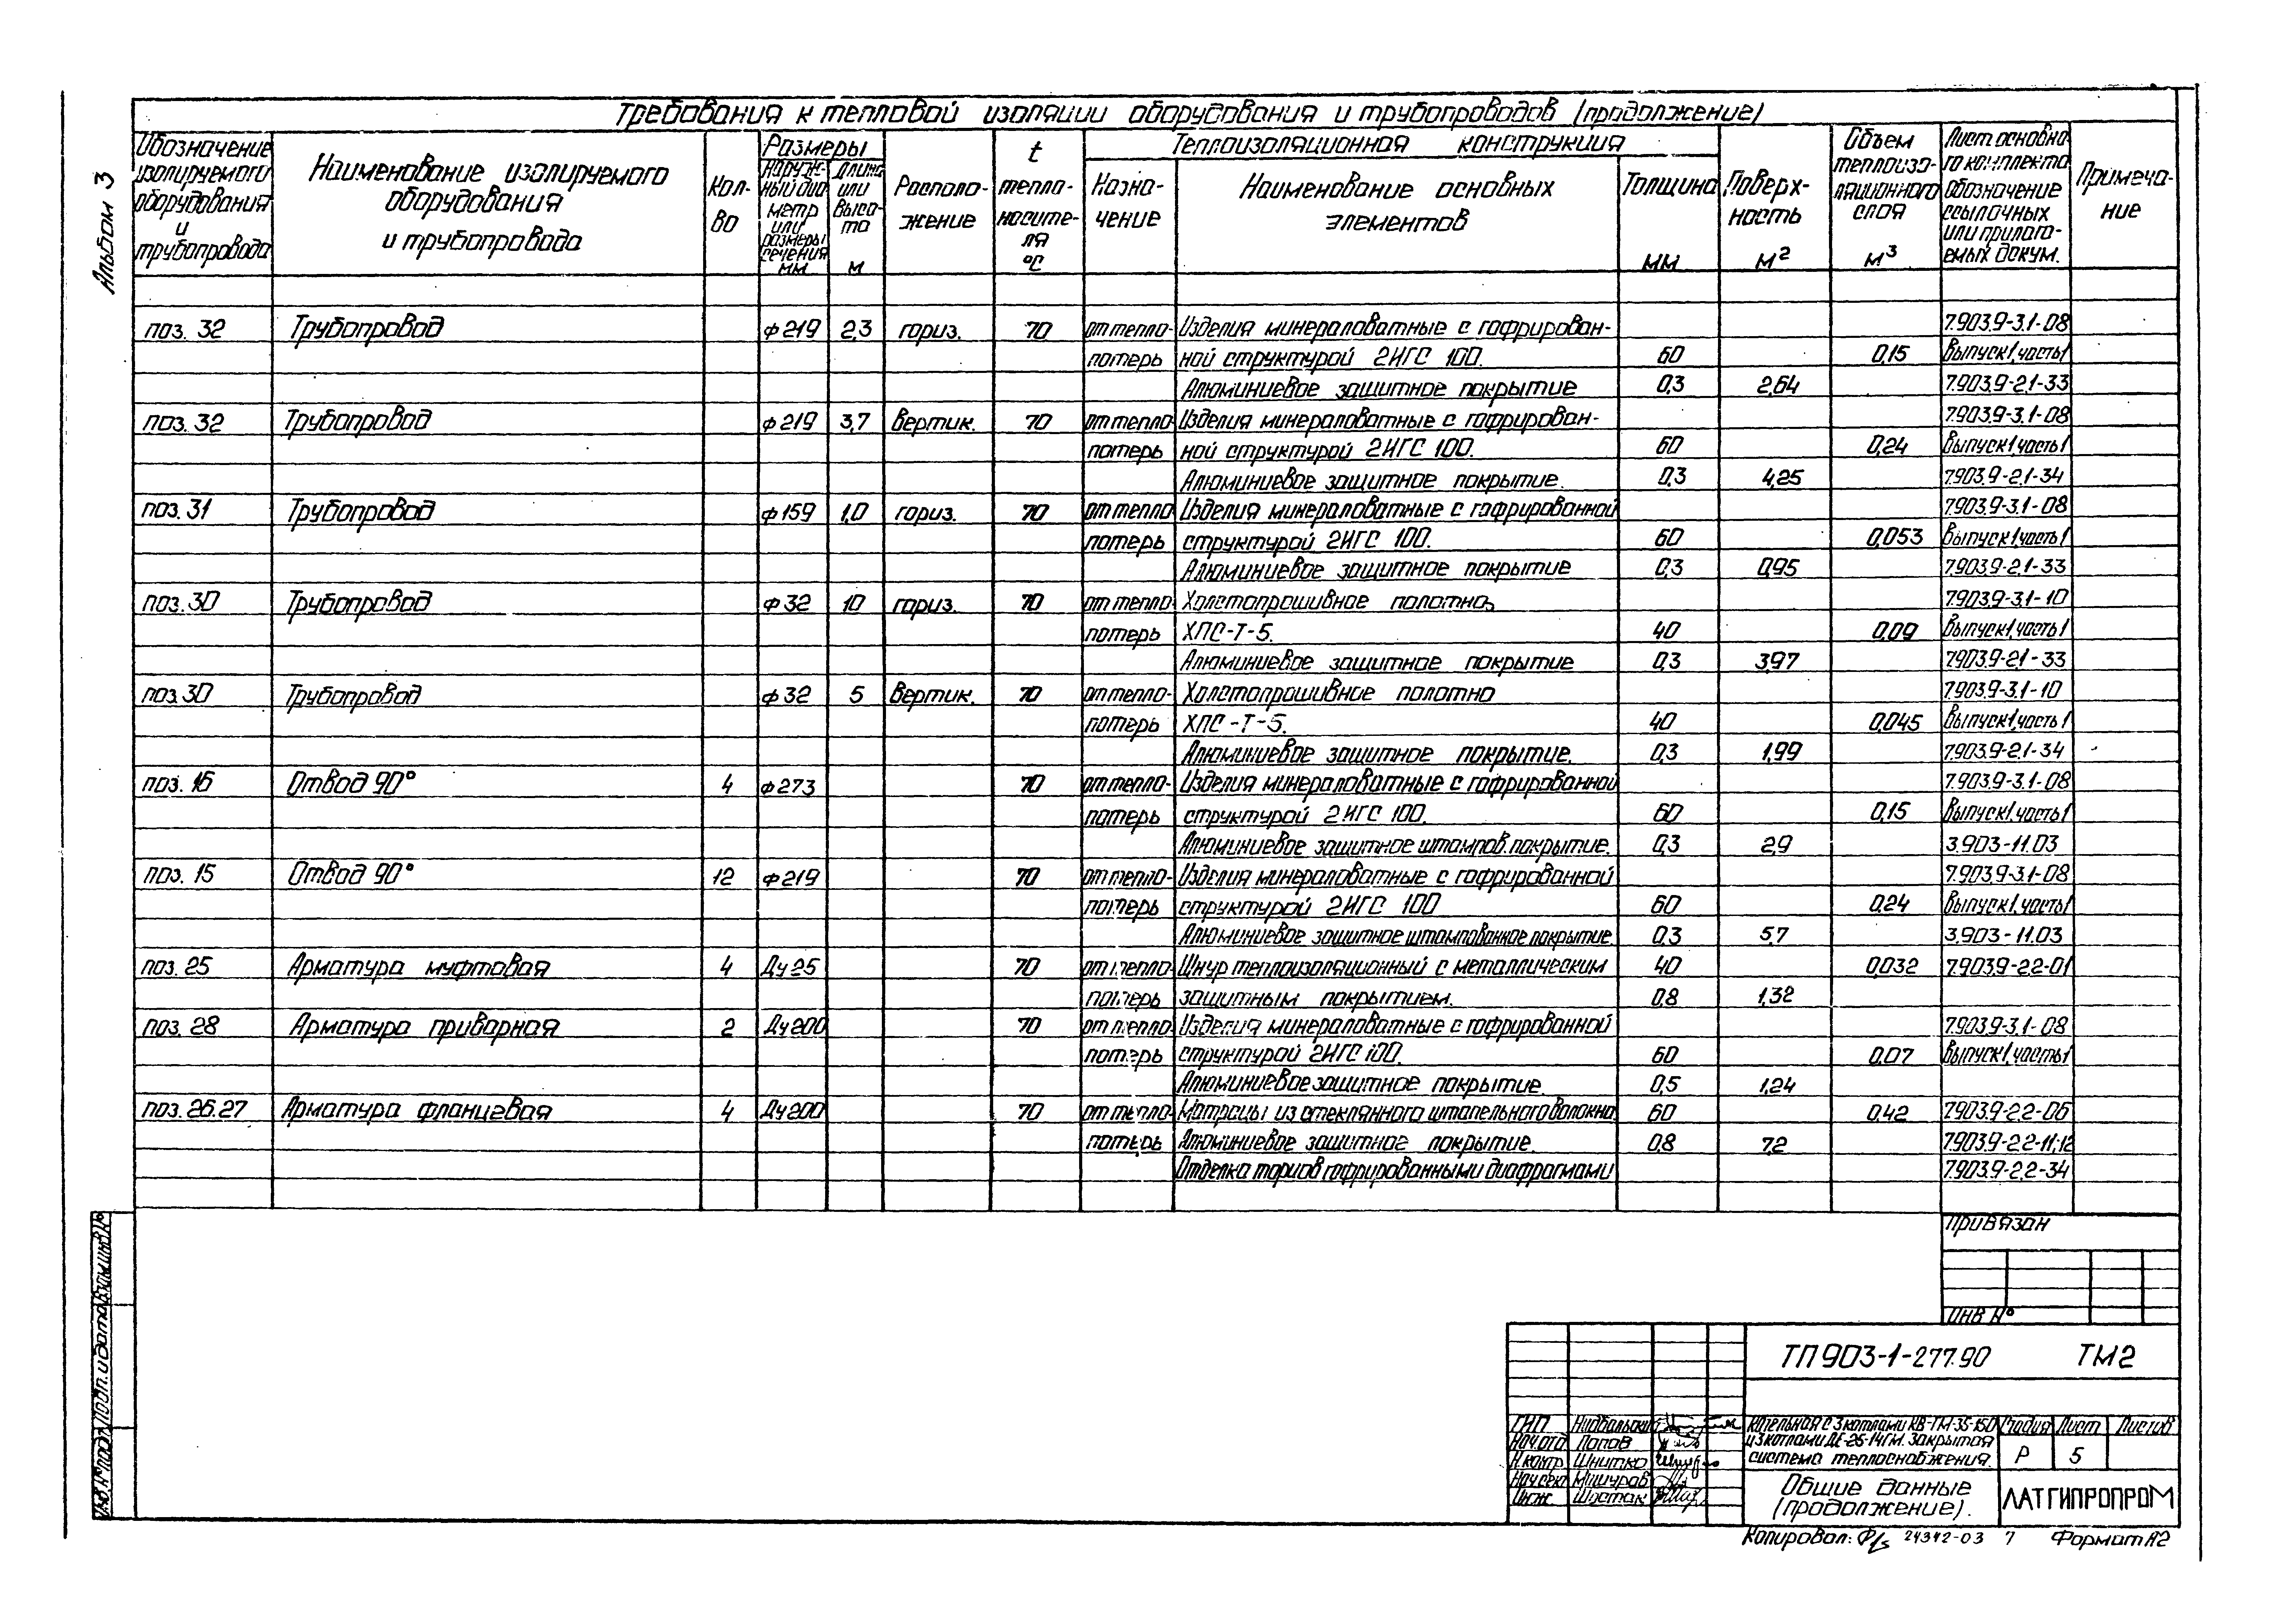 Альбом 3
Требования к тепловой изоляции оборудования и трубопроводов (продолжение)
Обозначение изолируемого оборудования и трубопровода
Наименование изолируемого оборудования и трубопровода
Кол-во
Размеры
Наруж-ный диаметр или размеры сечения мм
Длина или высо-та м
Располо-жение
t тепло-носите-ля °С
Теплоизоляционная конструкция
Назна-чение
Наименование основных элементов
Толщина мм
Поверх-ность м²
Объем теплоизо-ляционного слоя м³
Лист основно-го комплекта обозначение ссылочных или прилага-емых докум.
Примеча-ние
поз. 32 Трубопровод ф219 2,3 гориз. 70 от тепло- Изделия минераловатные с гофрирован- 7.903.9-3.1-08
потерь ной структурой 2ИГС 100. 60 0,15 Выпуск 1, часть 1
Алюминиевое защитное покрытие 0,3 2,64 7.903.9-2.1-33
поз. 32 Трубопровод ф219 3,7 вертик. 70 от тепло Изделия минераловатные с гофрирован- 7.903.9-3.1-08
потерь ной структурой 2ИГС 100. 60 0,24 Выпуск 1, часть 1
Алюминиевое защитное покрытие. 0,3 4,25 7.903.9-2.1-34
поз. 31 Трубопровод ф159 1,0 гориз. 70 от тепло Изделия минераловатные с гофрированной 7.903.9-3.1-08
потерь структурой 2ИГС 100. 60 0,053 Выпуск 1, часть 1
Алюминиевое защитное покрытие 0,3 0,95 7.903.9-2.1-33
поз. 30 Трубопровод ф32 10 гориз. 70 от тепло Холстопрошивное полотно, 7.903.9-3.1-10
потерь ХПС-Т-5. 40 0,09 Выпуск 1, часть 1
Алюминиевое защитное покрытие 0,3 3,97 7.903.9-2.1-33
поз. 30 Трубопровод ф32 5 вертик. 70 от тепло- Холстопрошивное полотно 7.903.9-3.1-10
потерь ХПС-Т-5. 40 0,045 Выпуск 1, часть 1
Алюминиевое защитное покрытие. 0,3 1,99 7.903.9-2.1-34
поз. 16 Отвод 90° 4 ф273 70 от тепло- Изделия минераловатные с гофрированной 7.903.9-3.1-08
потерь структурой 2ИГС 100. 60 0,15 Выпуск 1, часть 1
Алюминиевое защитное штампов. покрытие. 0,3 2,9 3.903-11.03
поз. 15 Отвод 90° 12 ф219 70 от тепло- Изделия минераловатные с гофрированной 7.903.9-3.1-08
потерь структурой 2ИГС 100 60 0,24 Выпуск 1, часть 1
Алюминиевое защитное штампованное покрытие. 0,3 5,7 3.903-11.03
поз. 25 Арматура муфтовая 4 Ду25 70 от тепло Шнур теплоизоляционный с металлическим 40 0,032 7.903.9-2.2-01
потерь защитным покрытием. 0,8 1,32
поз. 28 Арматура приварная 2 Ду200 70 от тепло Изделия минераловатные с гофрированной 7.903.9-3.1-08
потерь структурой 2ИГС 100. 60 0,07 Выпуск 1, часть 1
Алюминиевое защитное покрытие. 0,5 1,24
поз. 26.27 Арматура фланцевая 4 Ду200 70 от тепло Матрацы из стеклянного штапельного волокна 60 0,42 7.903.9-2.2-06
потерь Алюминиевое защитное покрытие. 0,8 7,2 7.903.9-2.2-11,12
Отделка торцов гофрированными диафрагмами 7.903.9-2.2-34
Привязан
Инв №
Инв. № подл. Подп. и дата Взам. инв. №
ТП 903-1-277.90 ТМ2
ГИП
Нач. отд Попов
Н. контр Шнитко
Нач. сек Мишуров
Инж. Шостак
Котельная с 3 котлами КВ-ГМ-35-150
и 3 котлами ДЕ-25-14ГМ. Закрытая
система теплоснабжения.
Стадия Лист Листов
Р 5
Общие данные
(продолжение).
ЛАТГИПРОПРОМ
Копировал: 24342-03 7 Формат А2